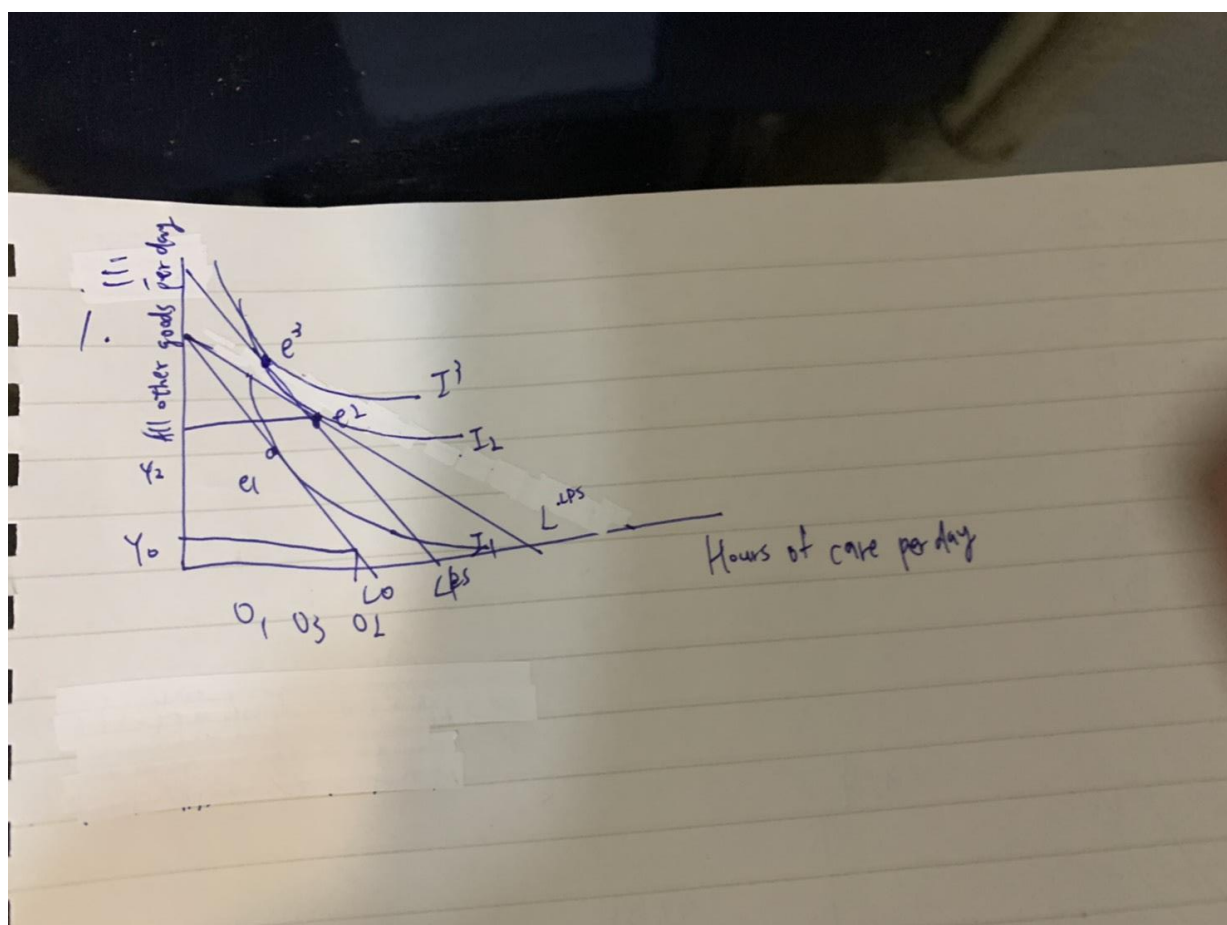 111
1.
All other goods per day
e²
I³
e²
I₂
Y₂
e1
L^LPS
Y₀
I₁
Hours of care per day
L0
LPS
O₁ O₃ O2